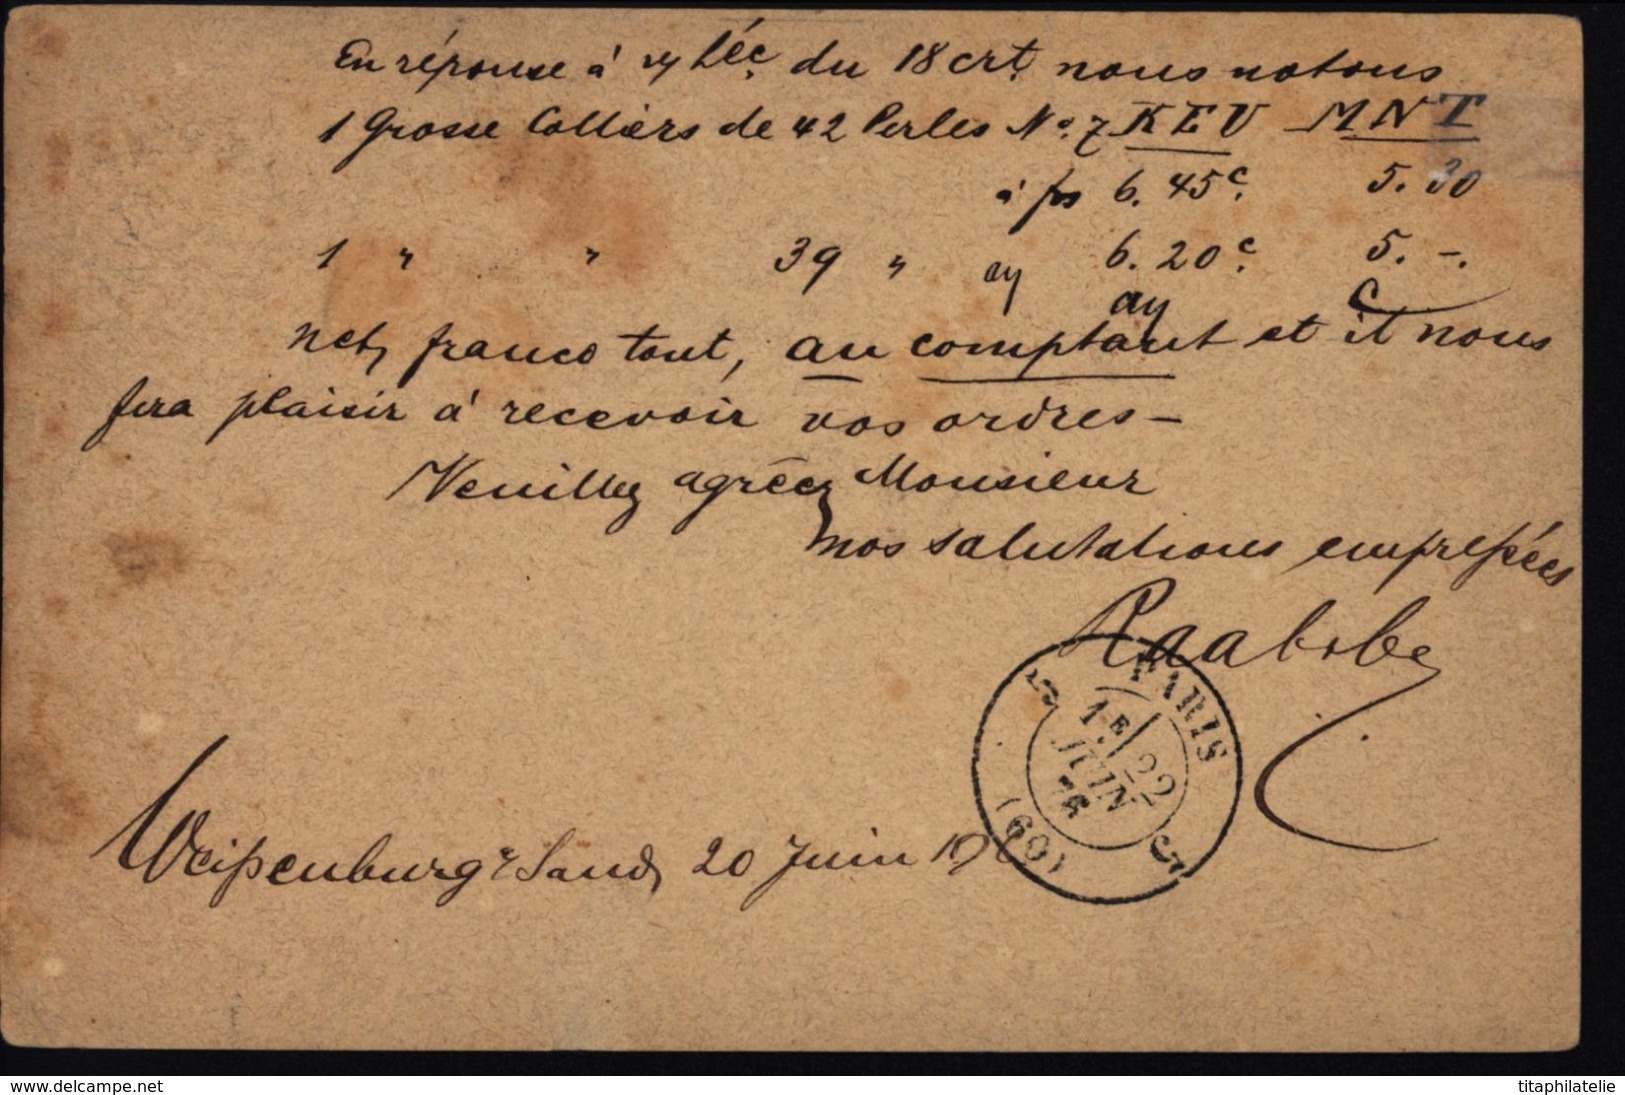 En réponse à du 18 crt. nous notons
1 Grosse Colliers de 42 Perles No. 7 KEV MNT
à frs 6.45c. 5.30
1 " " 39 " 6.20c. 5.-.
net, franco tout, au comptant et il nous
fera plaisir à recevoir vos ordres—
Veuillez agréer Monsieur
nos salutations empreßées
PARIS
1E/22
JUIN
76
(60)
Weißenburg s/Sand, 20 Juin
www.delcampe.net
titaphilatelie